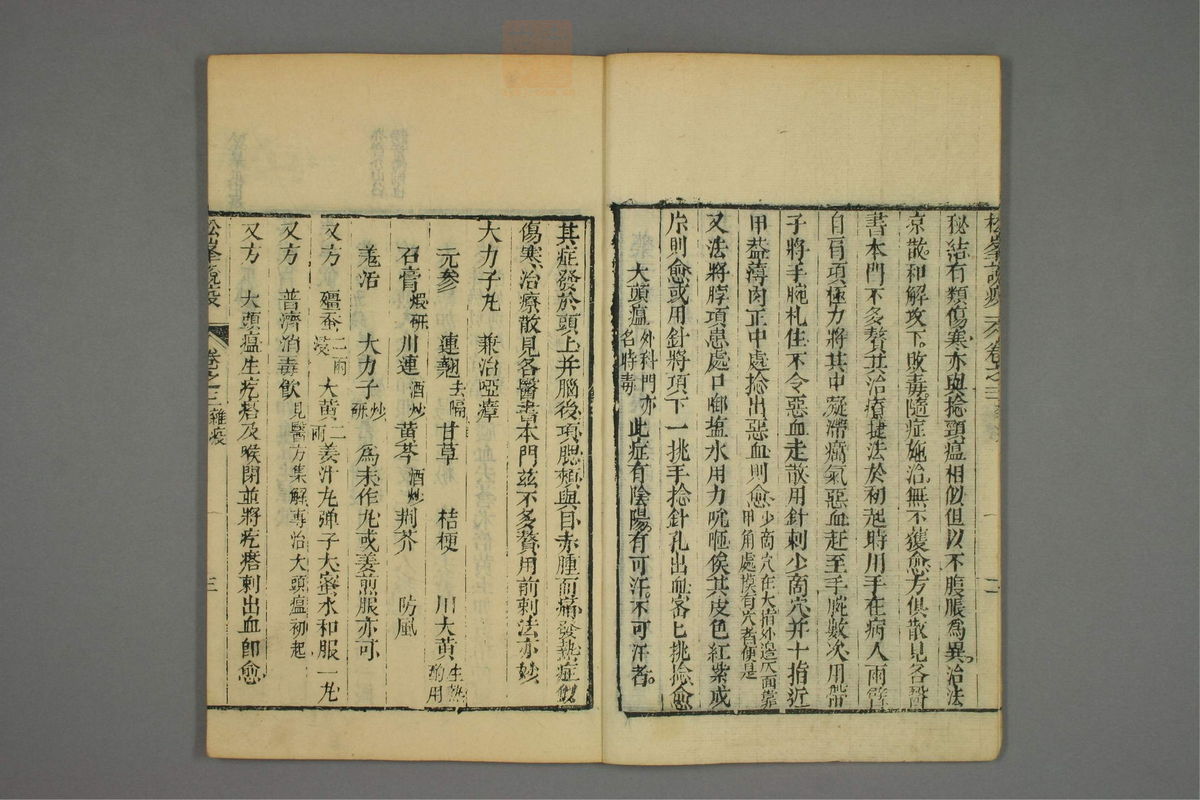 松峯說疫 卷之三 二
秘結有類傷寒亦與捻頸瘟相似但以不腹脹爲異治法
京散和解攻下敗毒隨症施治無不獲愈方俱散見各醫
書本門不多贅其治療捷法於初起時用手在病人兩臂
自肩項極力將其中凝滯瘟氣惡血赶至手腕數次用帶
子將手腕札住不令惡血走散用針刺少商穴并十指近
甲盡薄肉正中處捻出惡血則愈少商穴在大指外邊仄面靠
甲角處摸有穴者便是
又法將脖項患處口啣塩水用力吮咂俟其皮色紅紫成
片則愈或用針將項下一挑手捻針孔出血密匕挑捻愈
大頭瘟外科門亦
名時毒此症有陰陽有可汗不可汗者。
其症發於頭上并腦後項腮頰與目赤腫而痛發熱症似
傷寒治療散見各醫書本門茲不多贅用前刺法亦妙
大力子丸 兼治啞瘴
元參 連翹去隔 甘草 桔梗 川大黄生熟
酌用
石膏煅研 川連酒炒 黄芩酒炒 荆芥 防風
羗活 大力子炒
研 爲末作丸或姜煎服亦可
又方 殭蚕二兩
大黄二兩 姜汁丸弹子大蜜水和服一丸
又方 普濟消毒飲見醫方集解專治大頭瘟初起
又方 大頭瘟生疙瘩及喉閉並將疙瘩刺出血卽愈
松峯說疫 卷之三 雜疫 三